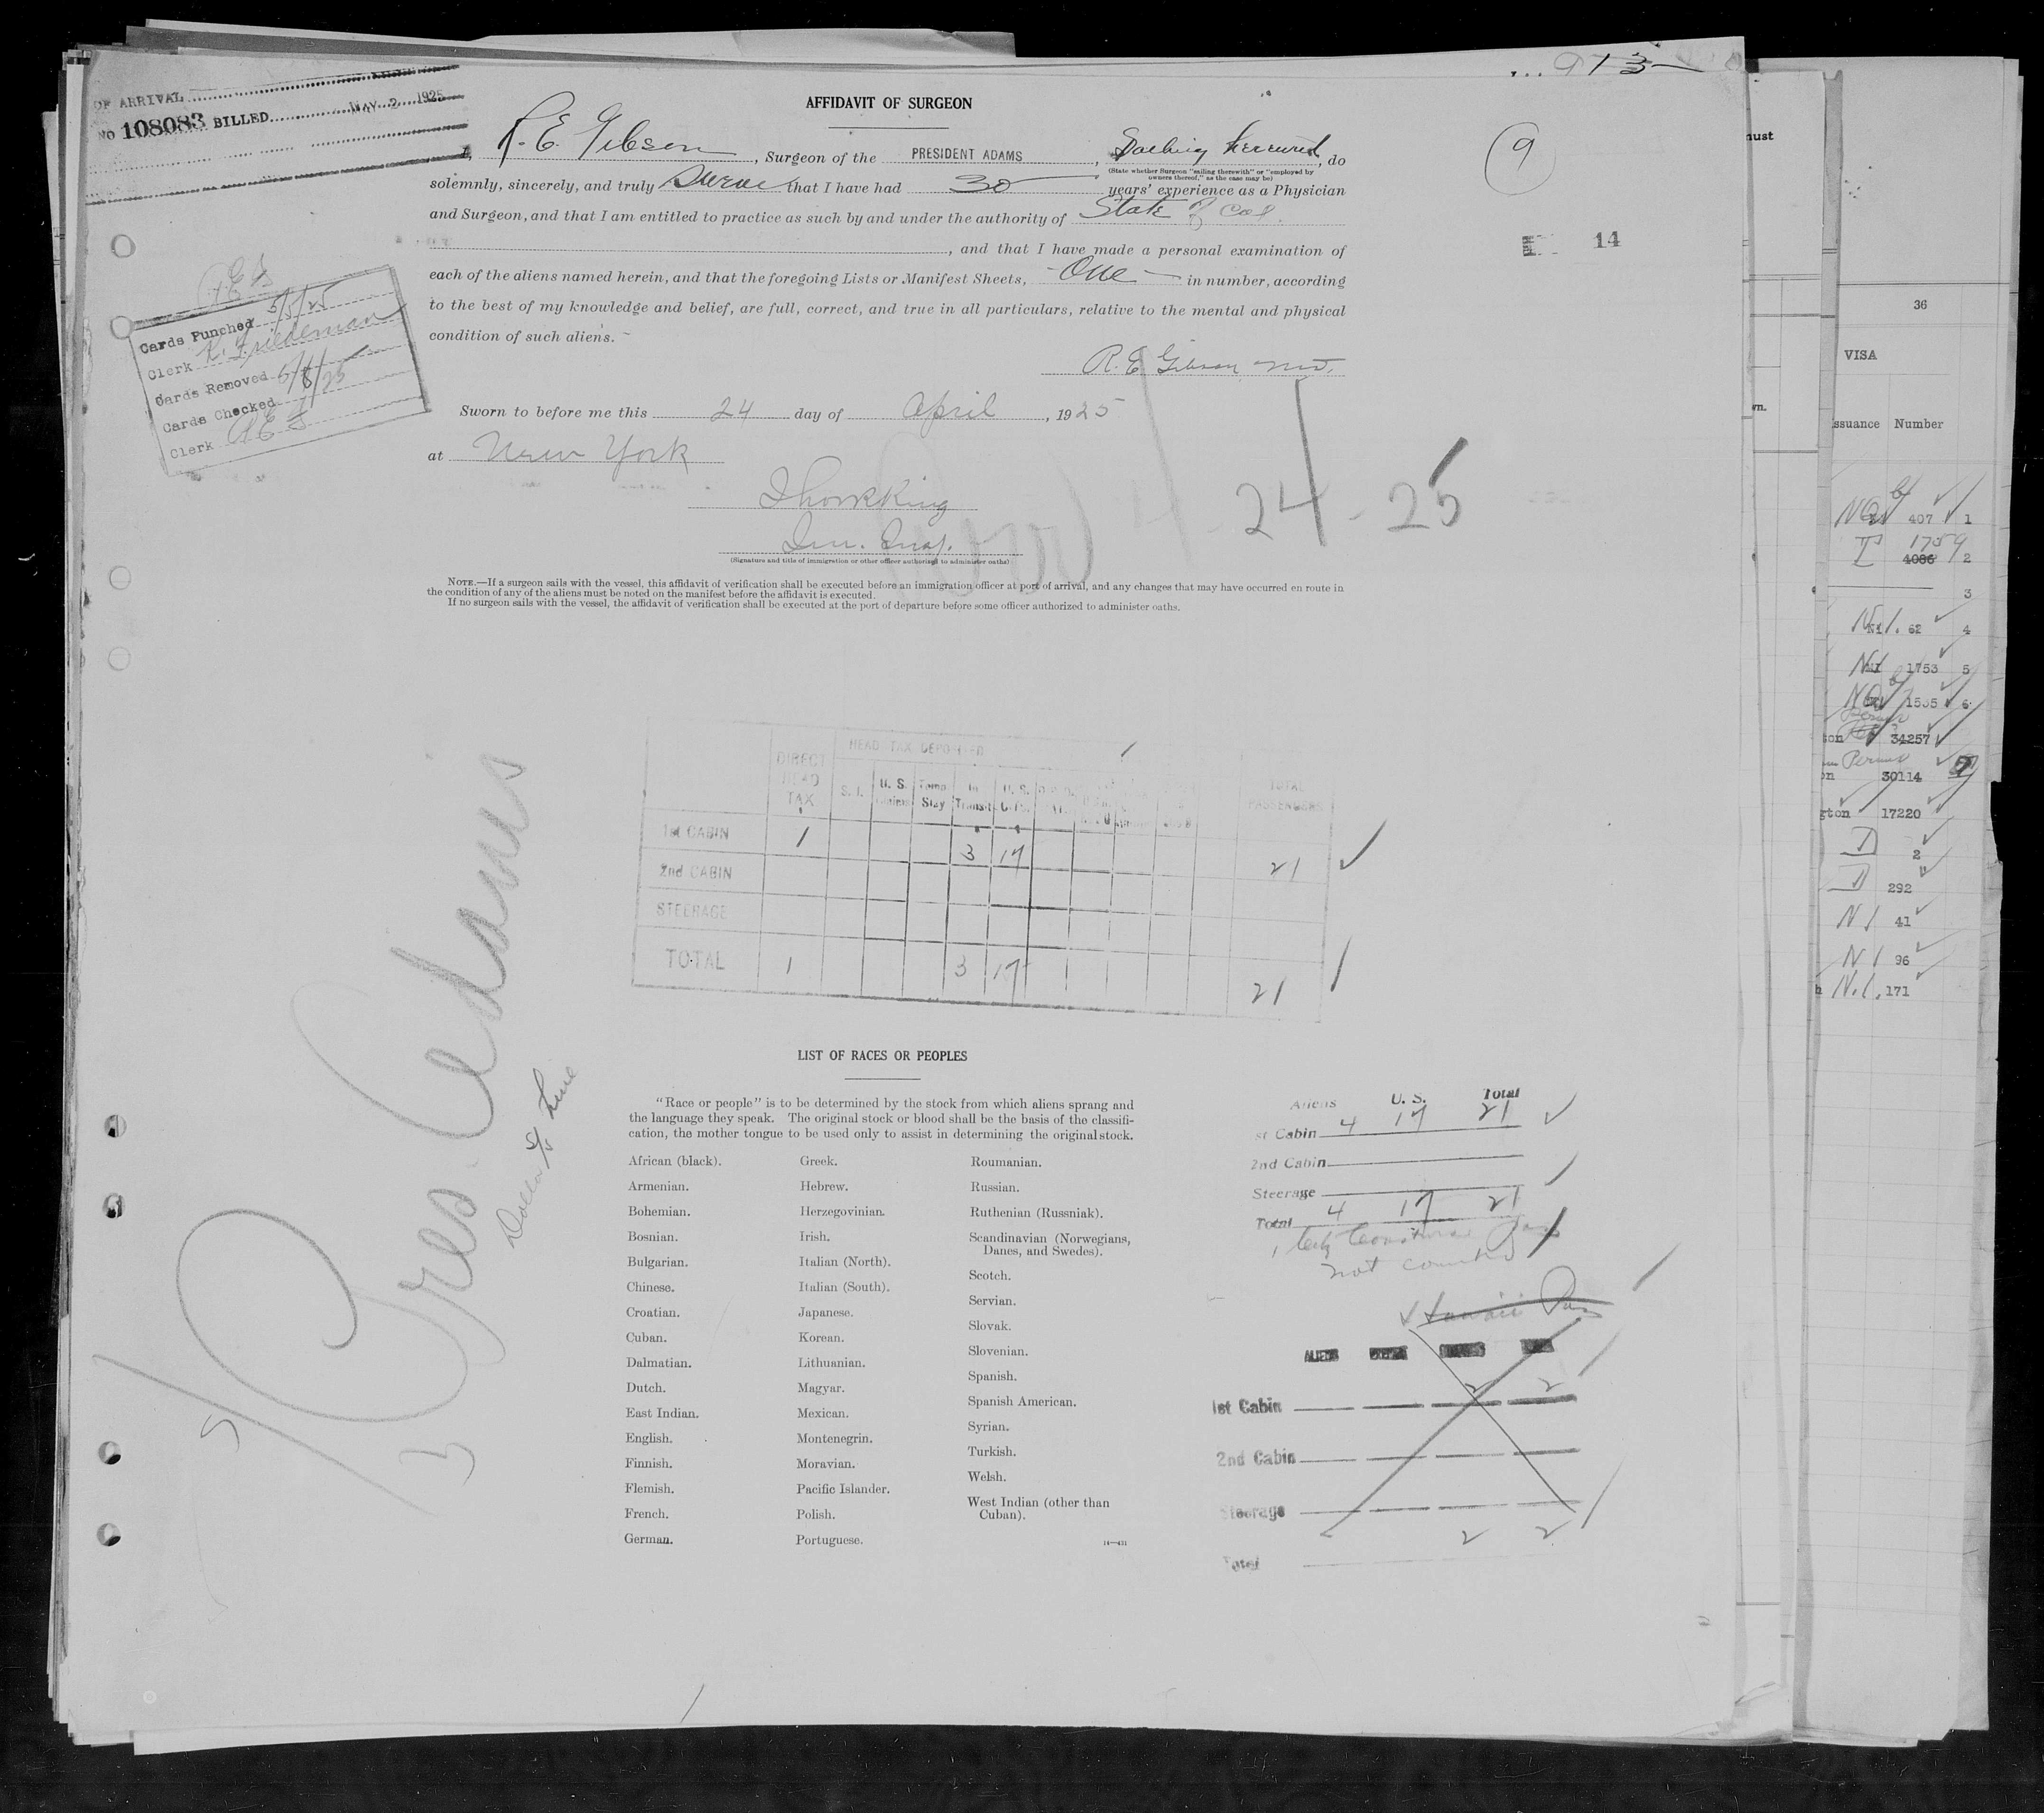 913
OF ARRIVAL
No 108083 BILLED MAY 2 1925
AFFIDAVIT OF SURGEON
I, R. E. Gibson, Surgeon of the PRESIDENT ADAMS, Sailing herewith, do
(State whether Surgeon "sailing therewith" or "employed by
owners thereof," as the case may be)
solemnly, sincerely, and truly swear that I have had 30 years' experience as a Physician
and Surgeon, and that I am entitled to practice as such by and under the authority of State of Cal.
, and that I have made a personal examination of
each of the aliens named herein, and that the foregoing Lists or Manifest Sheets, One in number, according
to the best of my knowledge and belief, are full, correct, and true in all particulars, relative to the mental and physical
condition of such aliens.
R. E. Gibson MD.
Sworn to before me this 24 day of April, 1925
at New York
Imm. Insp.
(Signature and title of immigration or other officer authorized to administer oaths)
9
14
Cards Punched 5/5/25
Clerk K. Friedeman
Cards Removed
Cards Checked 5/8/25
Clerk
4-24-25
NOTE.—If a surgeon sails with the vessel, this affidavit of verification shall be executed before an immigration officer at port of arrival, and any changes that may have occurred en route in
the condition of any of the aliens must be noted on the manifest before the affidavit is executed.
If no surgeon sails with the vessel, the affidavit of verification shall be executed at the port of departure before some officer authorized to administer oaths.
DIRECT HEAD TAX
HEAD TAX DEPOSITED
S. I.
U. S.
Temp. Stay
In Transit
U. S.
TOTAL PASSENGERS
1st CABIN 1 3 17 21
2nd CABIN
STEERAGE
TOTAL 1 3 17 21
Pres. Adams
Dollar S/S Line
LIST OF RACES OR PEOPLES
"Race or people" is to be determined by the stock from which aliens sprang and
the language they speak. The original stock or blood shall be the basis of the classifi-
cation, the mother tongue to be used only to assist in determining the original stock.
African (black).
Armenian.
Bohemian.
Bosnian.
Bulgarian.
Chinese.
Croatian.
Cuban.
Dalmatian.
Dutch.
East Indian.
English.
Finnish.
Flemish.
French.
German.
Greek.
Hebrew.
Herzegovinian.
Irish.
Italian (North).
Italian (South).
Japanese.
Korean.
Lithuanian.
Magyar.
Mexican.
Montenegrin.
Moravian.
Pacific Islander.
Polish.
Portuguese.
Roumanian.
Russian.
Ruthenian (Russniak).
Scandinavian (Norwegians,
Danes, and Swedes).
Scotch.
Servian.
Slovak.
Slovenian.
Spanish.
Spanish American.
Syrian.
Turkish.
Welsh.
West Indian (other than
Cuban).
Aliens U. S. Total
st Cabin 4 17 21
2nd Cabin
Steerage
Total 4 17 21
not counted
Hawaii Pas
ALIENS
1st Cabin 2 2
2nd Cabin
Steerage
Total 2 2
must
wn.
36
VISA
ssuance Number
407 1
1759
4086 2
3
N.I. 62 4
NI 1753 5
1535 6
ton 34257
Permit
on 30114 7
gton 17220
D 2
D 292
NI 41
NI 96
N.I. 171